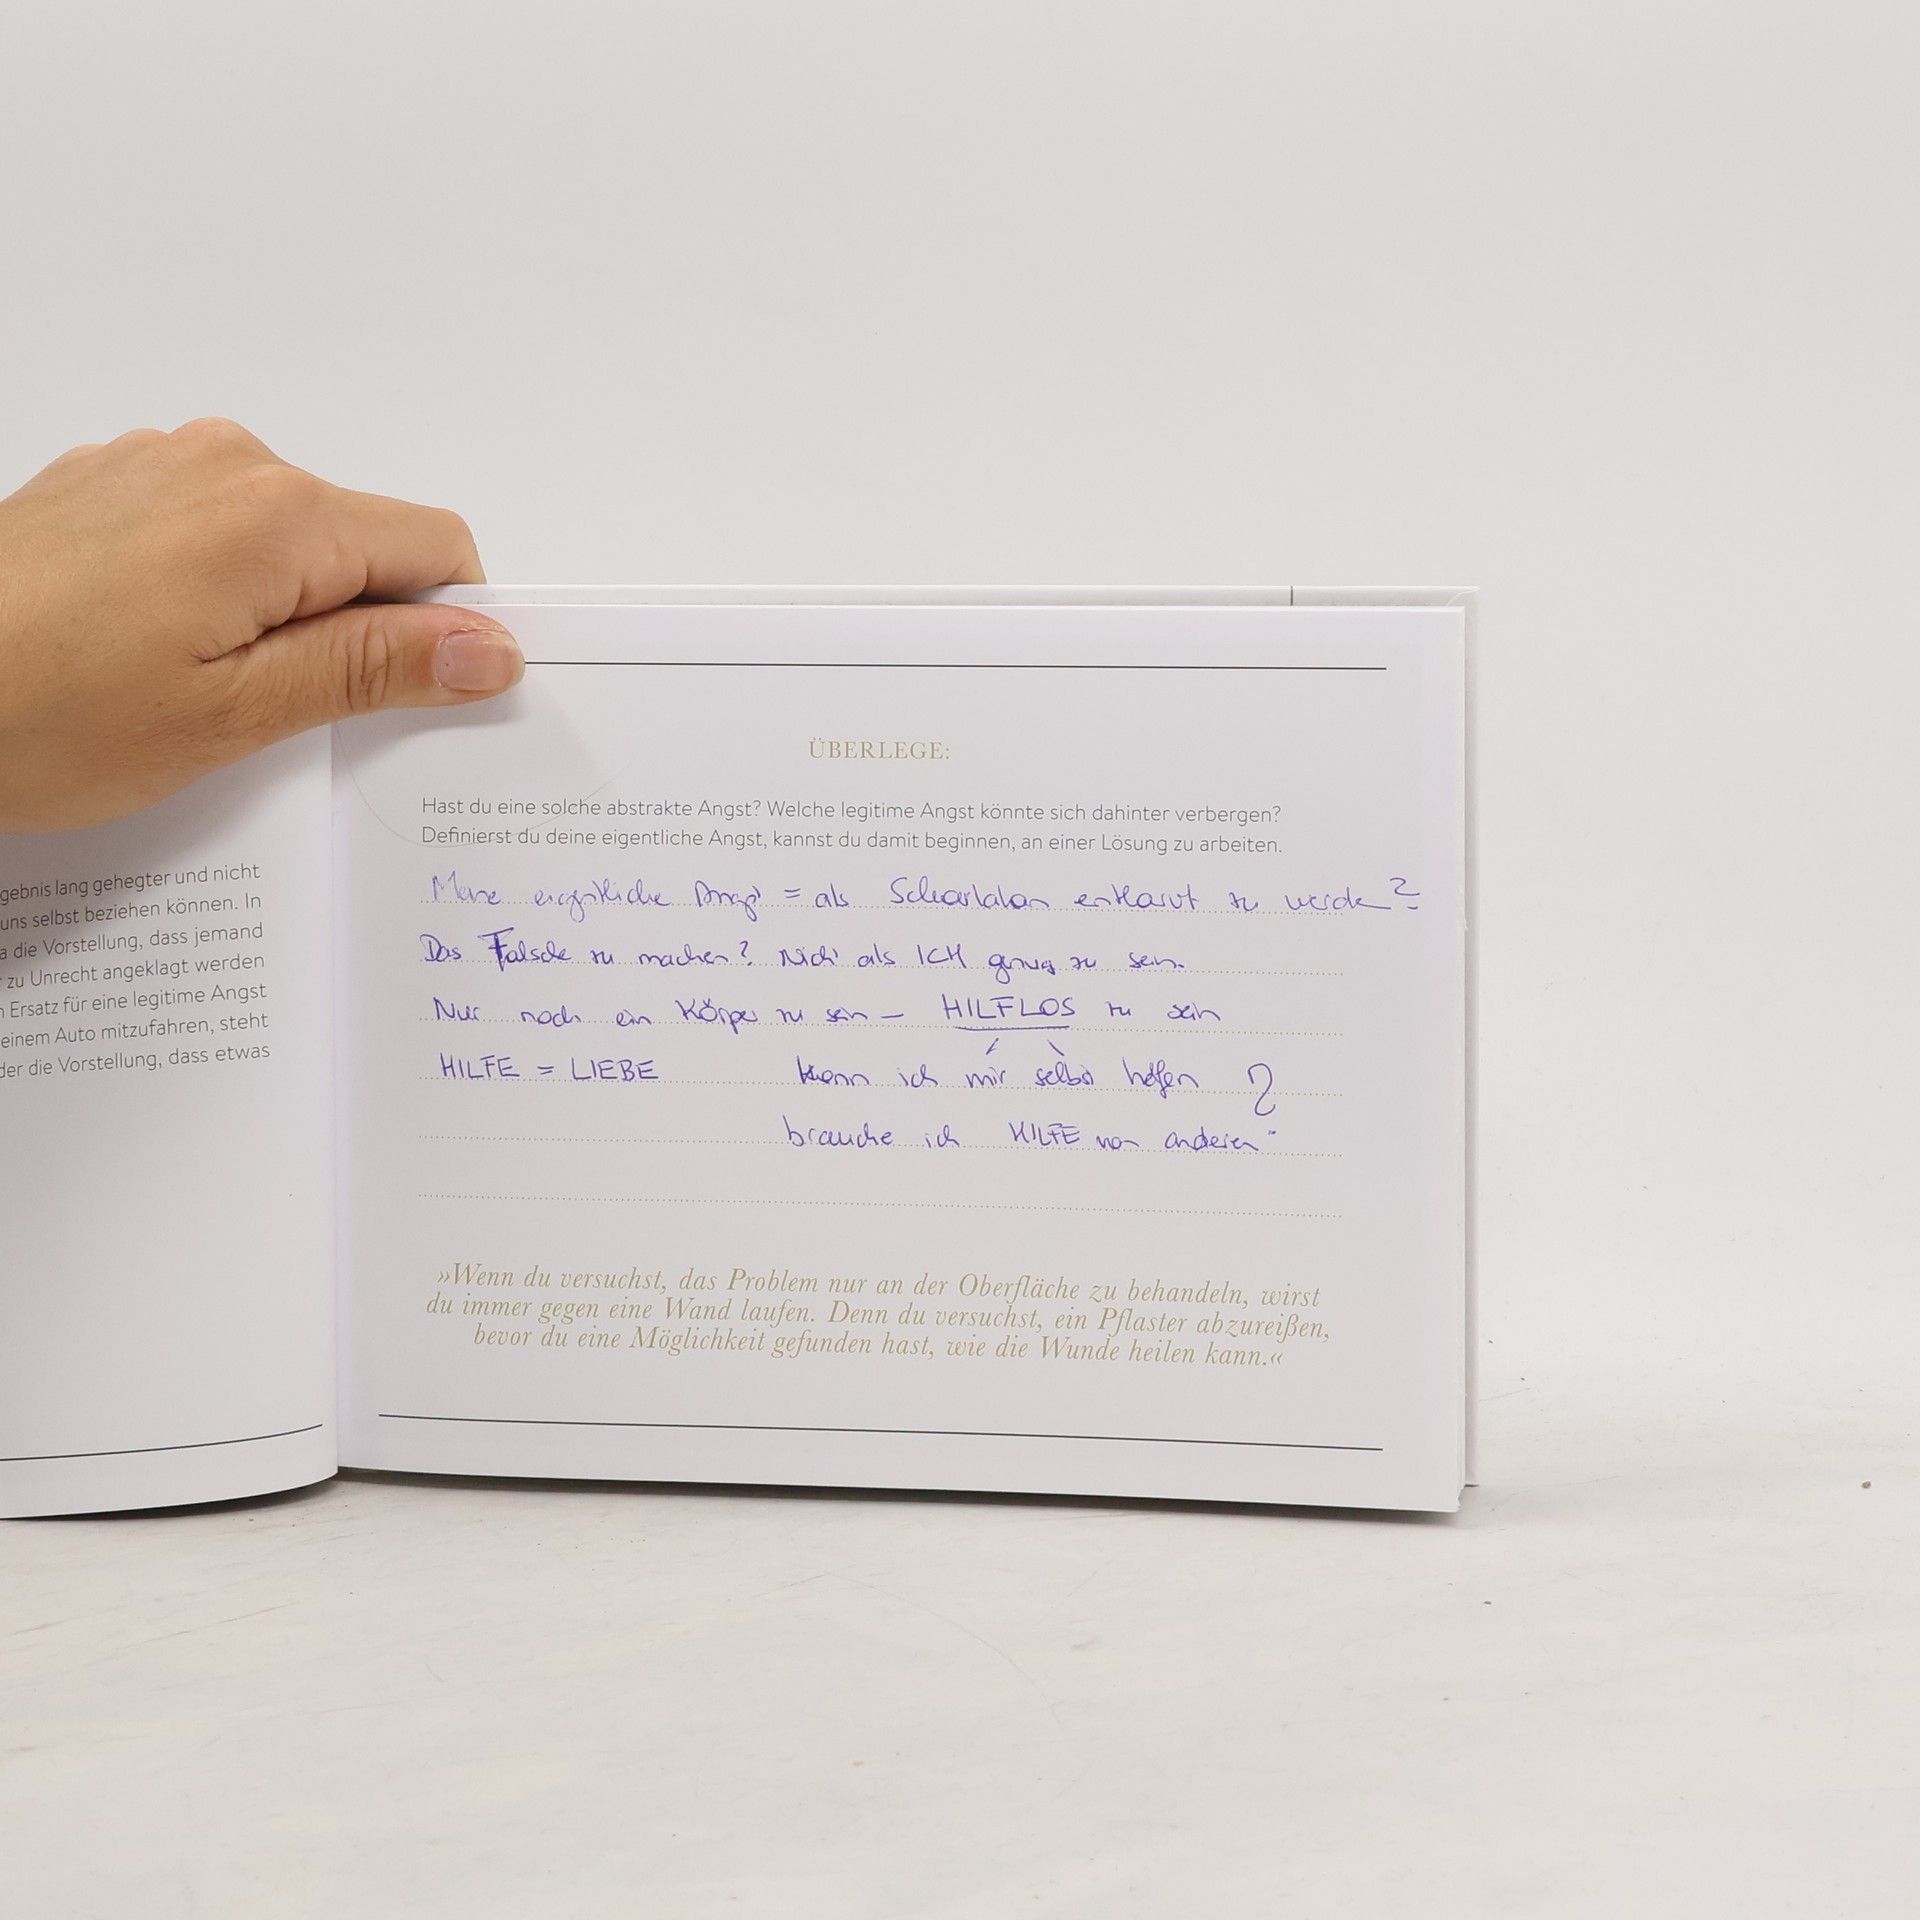 gebnis lang gehegter und nicht
uns selbst beziehen können. In
a die Vorstellung, dass jemand
zu Unrecht angeklagt werden
Ersatz für eine legitime Angst
einem Auto mitzufahren, steht
der die Vorstellung, dass etwas
ÜBERLEGE:
Hast du eine solche abstrakte Angst? Welche legitime Angst könnte sich dahinter verbergen?
Definierst du deine eigentliche Angst, kannst du damit beginnen, an einer Lösung zu arbeiten.
Meine eigentliche Angst = als Scharlatan entlarvt zu werden?
Das Falsche zu machen? Nicht als ICH genug zu sein.
Nur noch ein Körper zu sein – HILFLOS zu sein
HILFE = LIEBE kann ich mir selbst helfen ?
brauche ich HILFE von anderen
»Wenn du versuchst, das Problem nur an der Oberfläche zu behandeln, wirst
du immer gegen eine Wand laufen. Denn du versuchst, ein Pflaster abzureißen,
bevor du eine Möglichkeit gefunden hast, wie die Wunde heilen kann.«